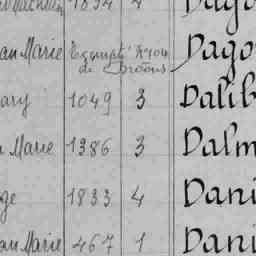 1834 4 Dago
an Marie Exempté N°704 Dago
de
ary 1049 3 Dalib
Marie 1386 3 Dalm
ge 1833 4 Dani
an Marie 467 1 Dani